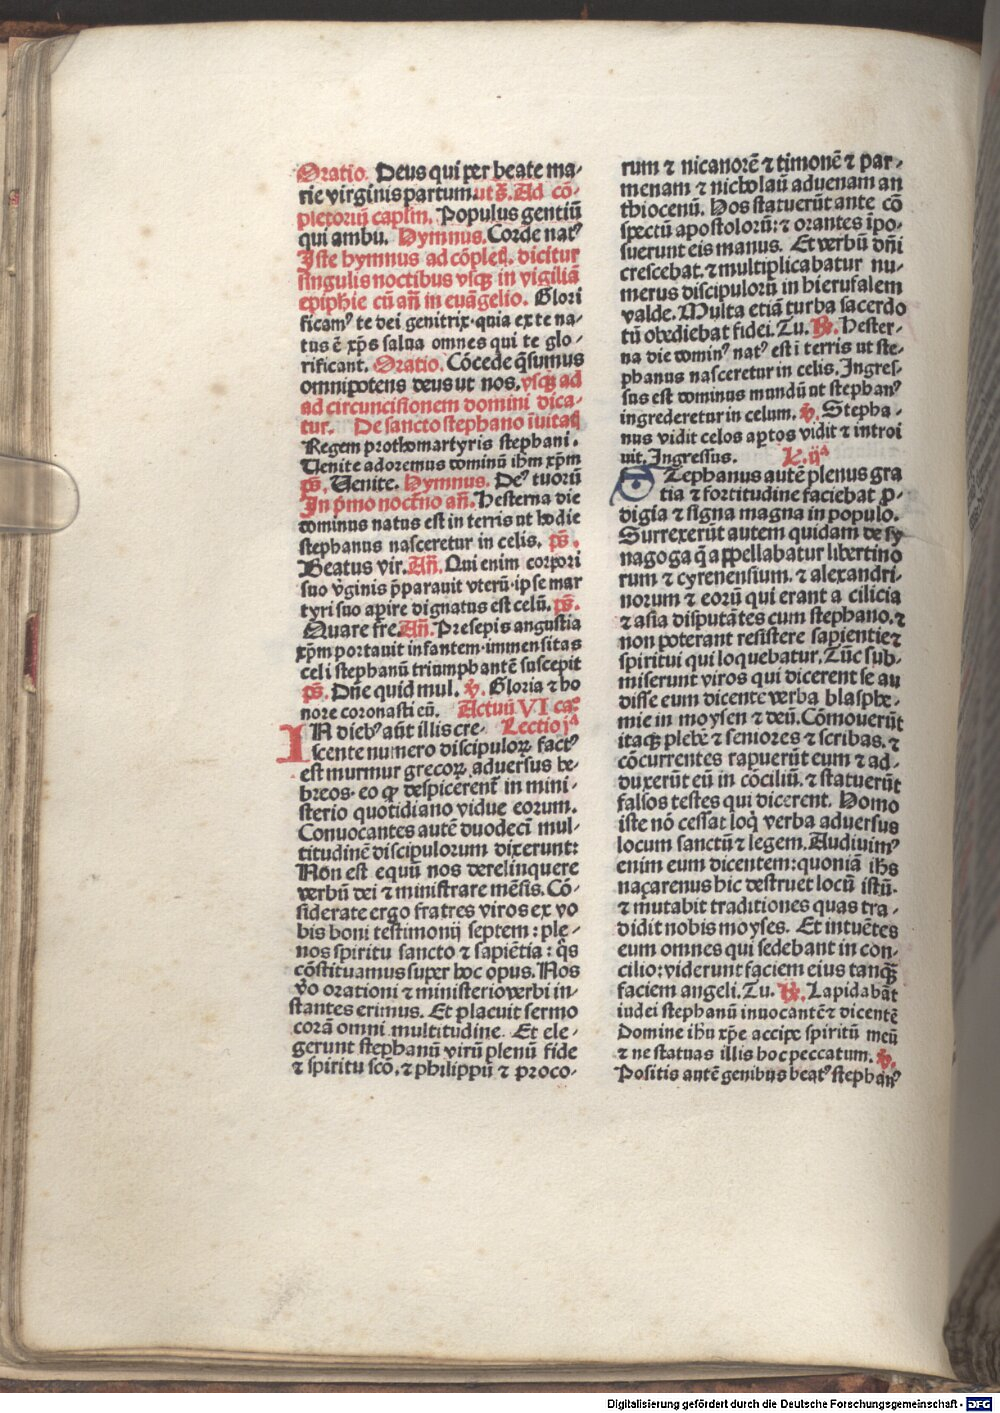 Oratio. Deus qui per beate ma-
rie virginis partum. ut s̄. Ad cō-
pletoriū caplm̄. Populus gentiū
qui ambu. Hymnus. Corde natꝰ
Iste hymnus ad cōpleꝗ. dicitur
singulis noctibus vsqꝫ in vigiliā
epiphie cū an̄ in euāgelio. Glori
ficamꝰ te dei genitrix· quia ex te na-
tus ē xp̄s salua omnes qui te glo-
rificant. Oratio. Cōcede q̄sumus
omnipotens deus ut nos. vsqꝫ ad
ad circuncisionem domini dica-
tur. De sancto stephano īuitaꝗ
Regem prothomartyris stephani.
Uenite adoremus dominū ihm̄ xp̄m
ps̄. Uenite. Hymnus. Deꝰ tuorū
In p̄mo noct̄no an̄. Hesterna die
dominus natus est in terris ut hodie
stephanus nasceretur in celis. ps̄.
Beatus vir. An̄. Qui enim corpori
suo v̄ginis p̄parauit uterū· ipse mar
tyri suo apire dignatus est celū. ps̄.
Quare fre. An̄. Presepis angustia
xp̄m portauit infantem· immensitas
celi stephanū triumphantē suscepit
ps̄. Dn̄e quid mul. v̄. Gloria ⁊ ho
nore coronasti eū. Actuū VI caꝫ
IN diebꝰ aūt illis cre- Lectio jᵃ
scente numero discipuloꝝ factꝰ
est murmur grecoꝝ aduersus he-
breos· eo ꝙ despicerent̄ in mini-
sterio quotidiano vidue eorum.
Conuocantes autē duodecī mul-
titudinē discipulorum dixerunt:
Non est equū nos derelinquere
verbū dei ⁊ ministrare mēsis. Cō-
siderate ergo fratres viros ex vo
bis boni testimonij septem: ple-
nos spiritu sancto ⁊ sapiētia: q̄s
cōstituamus super hoc opus. Nos
v̄o orationi ⁊ ministerio verbi in-
stantes erimus. Et placuit sermo
corā omni multitudine. Et ele-
gerunt stephanū virū plenū fide
⁊ spiritu scō. ⁊ philippū ⁊ proco-
rum ⁊ nicanorē ⁊ timonē ⁊ par-
menam ⁊ nicholaū aduenam an
thiocenū. Hos statuerūt ante cō
spectū apostolorū: ⁊ orantes īpo-
suerunt eis manus. Et verbū dn̄i
crescebat. ⁊ multiplicabatur nu-
merus discipulorū in hierusalem
valde. Multa etiā turba sacerdo
tū obediebat fidei. Tu. R̄. Hester-
na die dominꝰ natꝰ est ī terris ut ste-
phanus nasceretur in celis. Ingres-
sus est dominus mundū ut stephanꝰ
ingrederetur in celum. v̄. Stepha-
nus vidit celos aptos vidit ⁊ introi
uit. Ingressus. L. ijᵃ
STephanus autē plenus gra
tia ⁊ fortitudine faciebat ꝓ-
digia ⁊ signa magna in populo.
Surrexerūt autem quidam de sy
nagoga q̄ appellabatur libertino
rum ⁊ cyrenensium. ⁊ alexandri-
norum ⁊ eorū qui erant a cilicia
⁊ asia disputātes cum stephano. ⁊
non poterant resistere sapientie ⁊
spiritui qui loquebatur. Tūc sub-
miserunt viros qui dicerent se au
disse eum dicente verba blasphe-
mie in moysen ⁊ deū. Cōmouerūt
itaqꝫ plebē ⁊ seniores ⁊ scribas. ⁊
cōcurrentes rapuerūt eum ⁊ ad-
duxerūt eū in cōciliū. ⁊ statuerūt
falsos testes qui dicerent. Homo
iste nō cessat loqͥ verba aduersus
locum sanctū ⁊ legem. Audiuimꝰ
enim eum dicentem: quoniā ihs̄
naçarenus hic destruet locū istū.
⁊ mutabit traditiones quas tra-
didit nobis moyses. Et intuētes
eum omnes qui sedebant in con-
cilio: viderunt faciem eius tanqꝫ
faciem angeli. Tu. R̄. Lapidabāt
iudei stephanū inuocantē ⁊ dicentē
Domine ihu xp̄e accipe spiritū meū
⁊ ne statuas illis hoc peccatum. v̄.
Positis autē genibus beatꝰ stephanꝰ
Digitalisierung gefördert durch die Deutsche Forschungsgemeinschaft - DFG